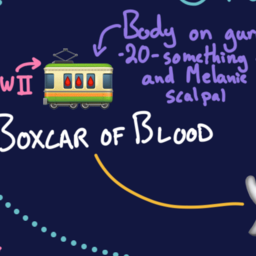 Body on gur
-20-something
and Melanie
scalpal
WII
BOXCAR OF BLOOD